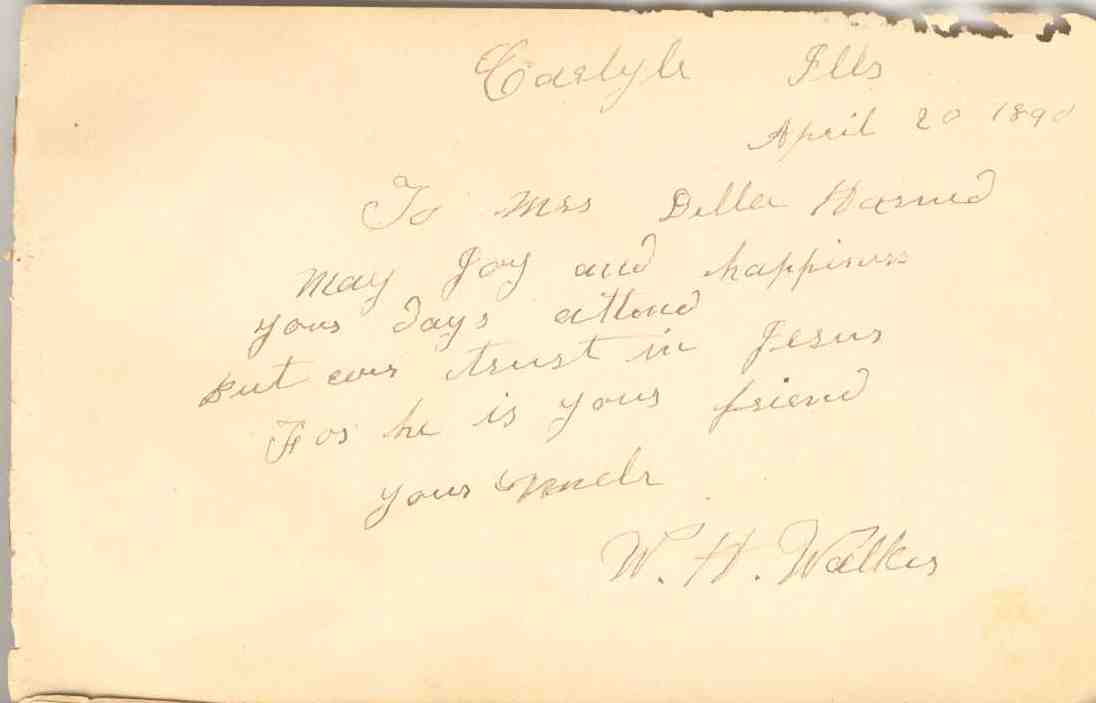 Carlyle Ills
April 20 1890
To Mrs Della Harned
May Joy and happiness
your days attend
But ever trust in Jesus
For he is your friend
your Uncle
W. H. Walker